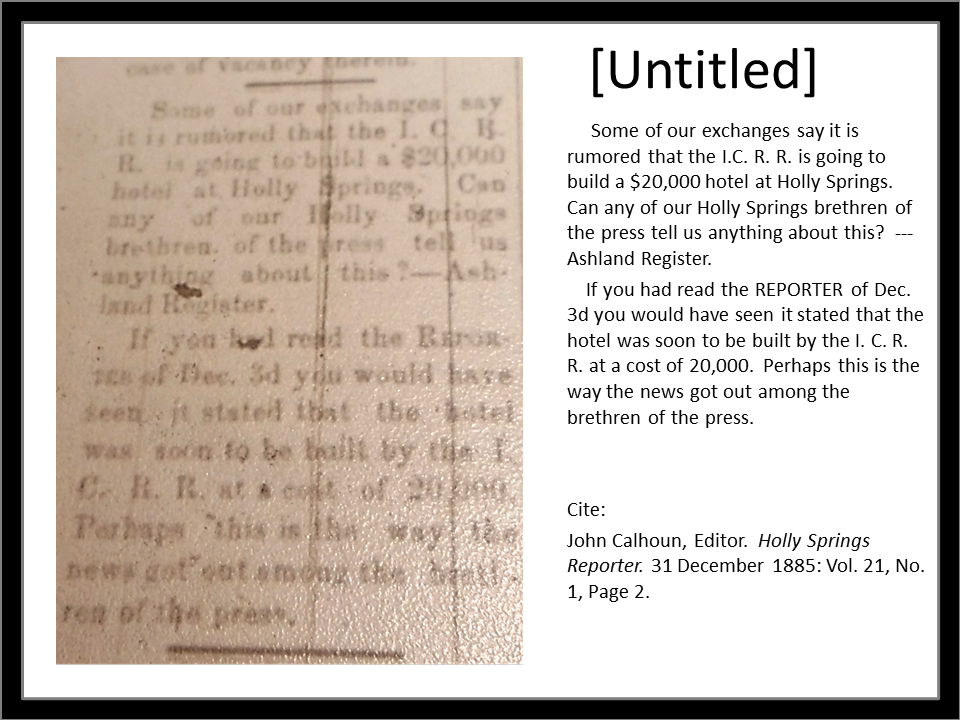 case of vacancy therein.
Some of our exchanges say
it is rumored that the I. C. R.
R. is going to build a $20,000
hotel at Holly Springs. Can
any of our Holly Springs
brethren of the press tell us
anything about this?—Ash-
land Register.
If you had read the REPOR-
TER of Dec. 3d you would have
seen it stated that the hotel
was soon to be built by the I.
C. R. R. at a cost of 20,000.
Perhaps this is the way the
news got out among the breth-
ren of the press.
[Untitled]
Some of our exchanges say it is
rumored that the I.C. R. R. is going to
build a $20,000 hotel at Holly Springs.
Can any of our Holly Springs brethren of
the press tell us anything about this? ---
Ashland Register.
If you had read the REPORTER of Dec.
3d you would have seen it stated that the
hotel was soon to be built by the I. C. R.
R. at a cost of 20,000. Perhaps this is the
way the news got out among the
brethren of the press.
Cite:
John Calhoun, Editor. Holly Springs
Reporter. 31 December 1885: Vol. 21, No.
1, Page 2.